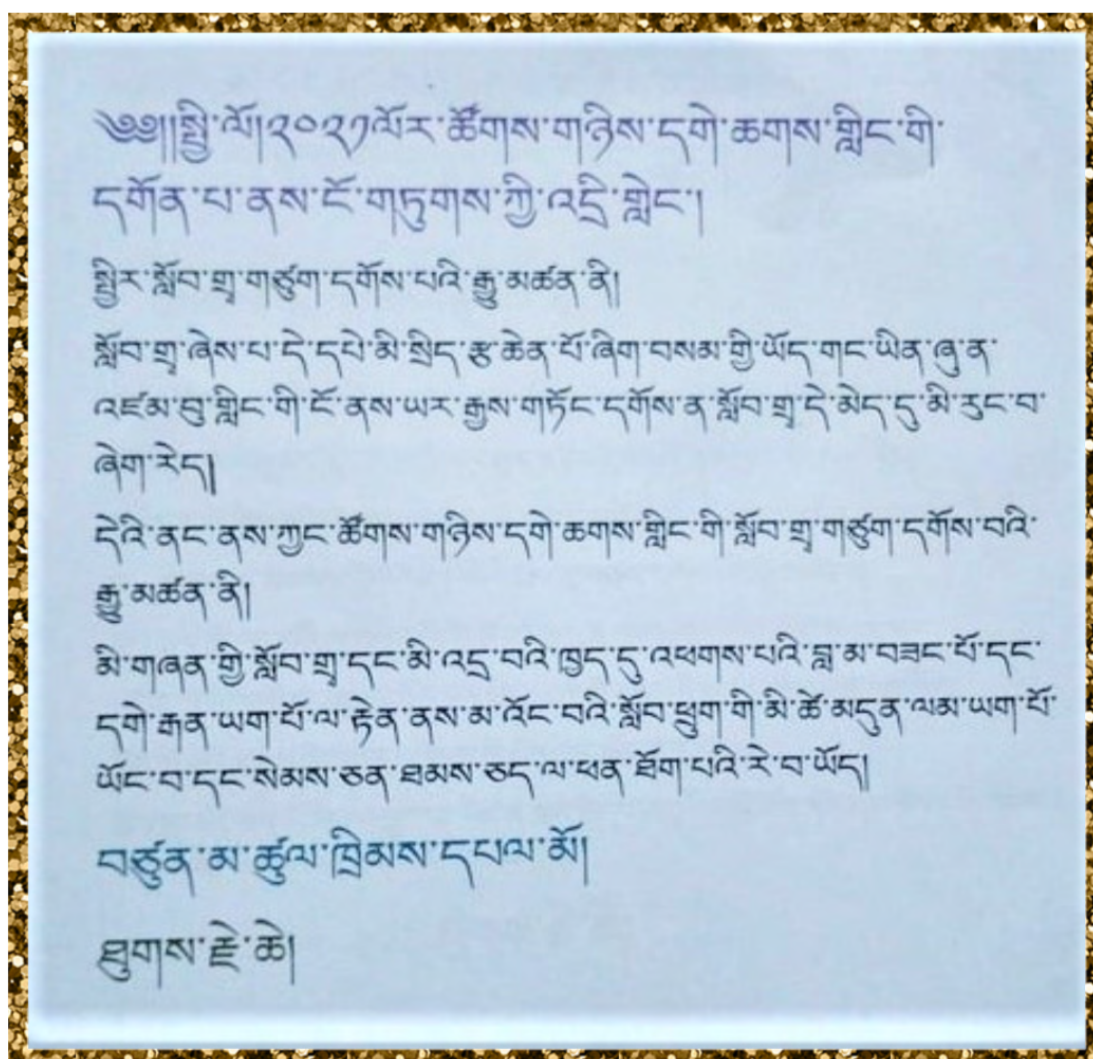 ༄༅།།སྤྱི་ལོ།༢༠༢༡ལོར་ཚོགས་གཉིས་དགེ་ཆགས་གླིང་གི་
དགོན་པ་ནས་ངོ་གཏུགས་ཀྱི་འདྲི་གླེང་།
སྤྱིར་སློབ་གྲྭ་གཙུག་དགོས་པའི་རྒྱུ་མཚན་ནི།
སློབ་གྲྭ་ཞེས་པ་དེ་དཔེ་མི་སྲིད་རྩ་ཆེན་པོ་ཞིག་བསམ་གྱི་ཡོད་གང་ཡིན་ཞུ་ན་
འཛམ་བུ་གླིང་གི་ངོ་ནས་ཡར་རྒྱས་གཏོང་དགོས་ན་སློབ་གྲྭ་དེ་མེད་དུ་མི་རུང་བ་
ཞེག་རེད།
དེའི་ནང་ནས་ཀྱང་ཚོགས་གཉིས་དགེ་ཆགས་གླིང་གི་སློབ་གྲྭ་གཙུག་དགོས་བའི་
རྒྱུ་མཚན་ནི།
མི་གཞན་གྱི་སློབ་གྲྭ་དང་མི་འདྲ་བའི་ཁྱད་དུ་འཕགས་པའི་བླ་མ་བཟང་པོ་དང་
དགེ་རྒན་ཡག་པོ་ལ་རྟེན་ནས་མ་འོང་བའི་སློབ་ཕྲུག་གི་མི་ཚེ་མདུན་ལམ་ཡག་པོ་
ཡོང་བ་དང་སེམས་ཅན་ཐམས་ཅད་ལ་ཕན་ཐོག་པའི་རེ་བ་ཡོད།
བཙུན་མ་ཚུལ་ཁྲིམས་དཔལ་མོ།
ཐུགས་རྗེ་ཆེ།